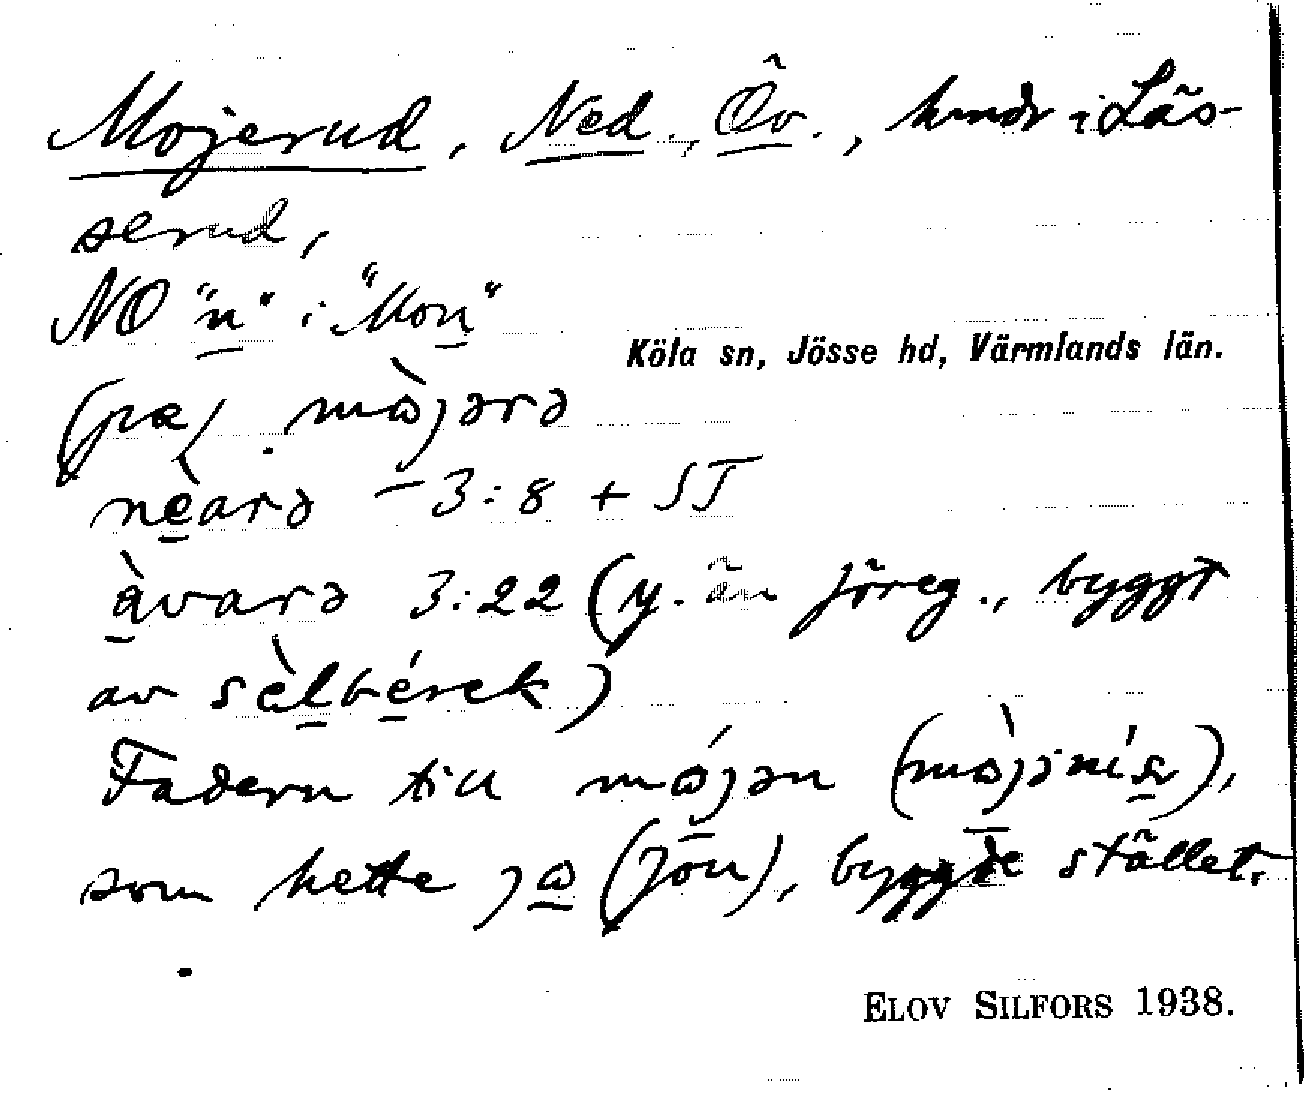 Mojerud, Ned., Öv., hmdr i Läs-
serud,
NO "n" i "Mon"
Köla sn, Jösse hd, Värmlands län.
(pæ) mòjərə
nèarə – 3:8 + ST
àvarə 3:22 (y. än föreg., byggt
av sèlbérek)
Fadern till mójən
som hette jɷ (Jon), byggde stället.
ELOV SILFORS 1938.